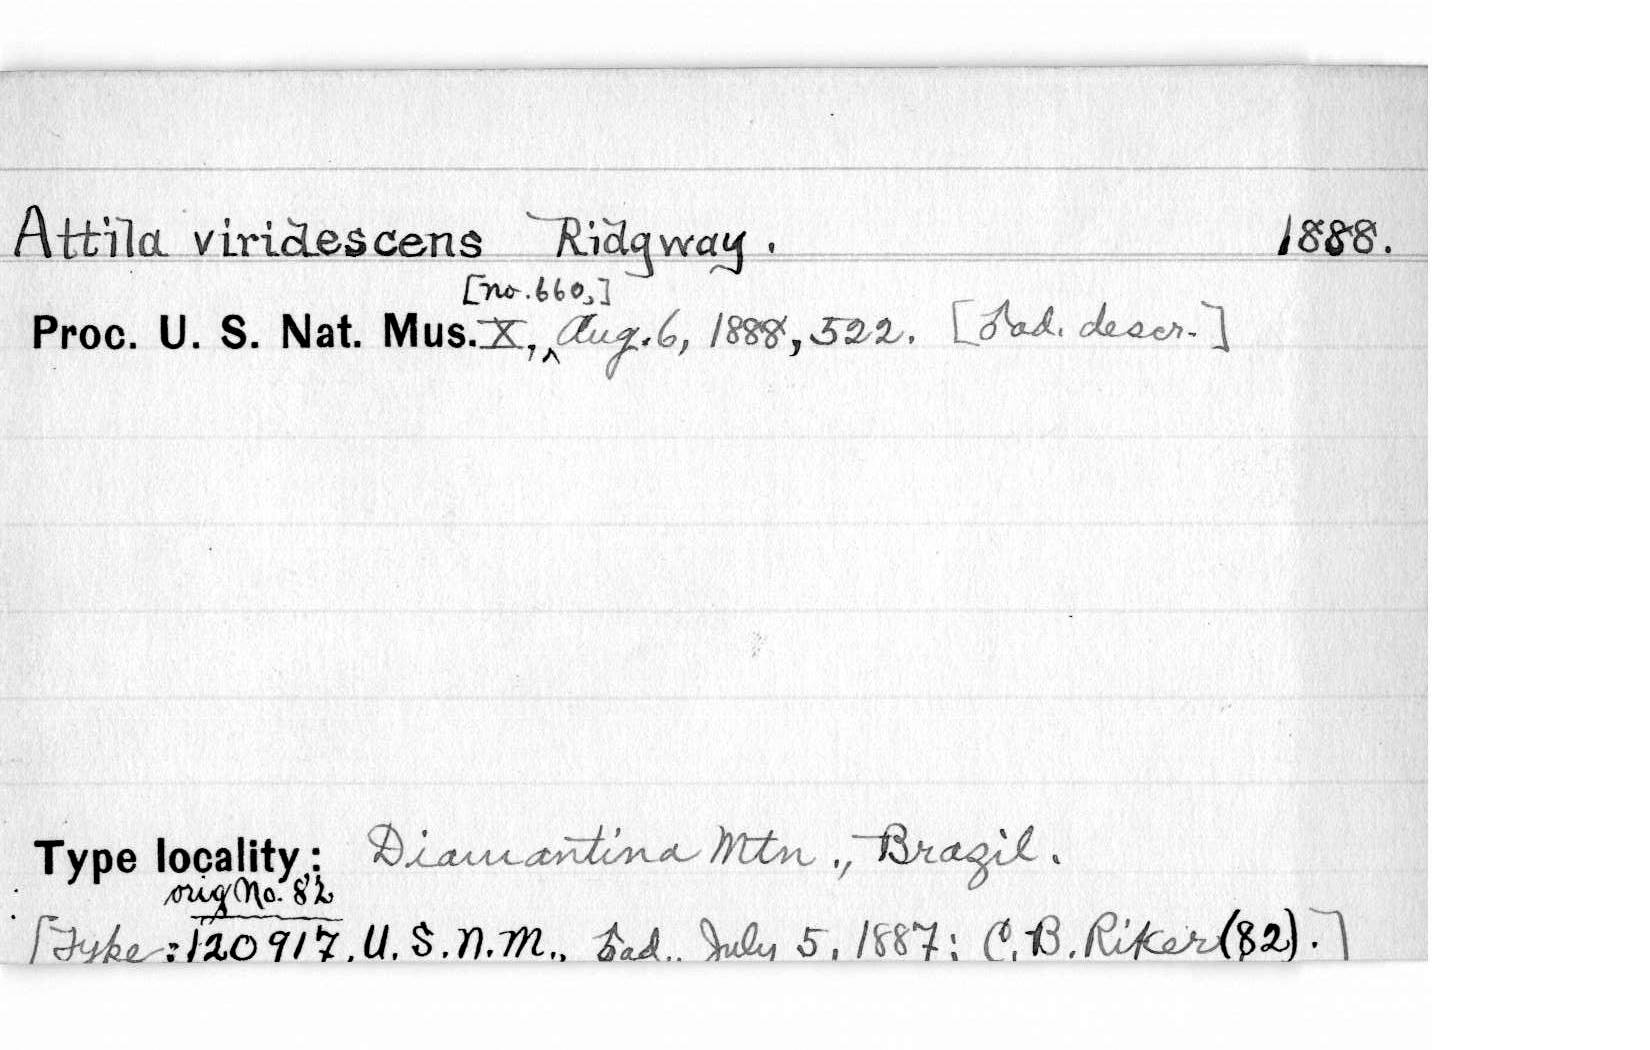 Attila viridescens Ridgway. 1888.
[no. 660,]
Proc. U. S. Nat. Mus. X, ^ Aug. 6, 1888, 522. [♂ad. descr.]
Type locality: Diamantina Mtn., Brazil.
orig No. 82
[Type: 120917, U. S. N. M., ♂ad., July 5, 1887; C. B. Riker (82).]